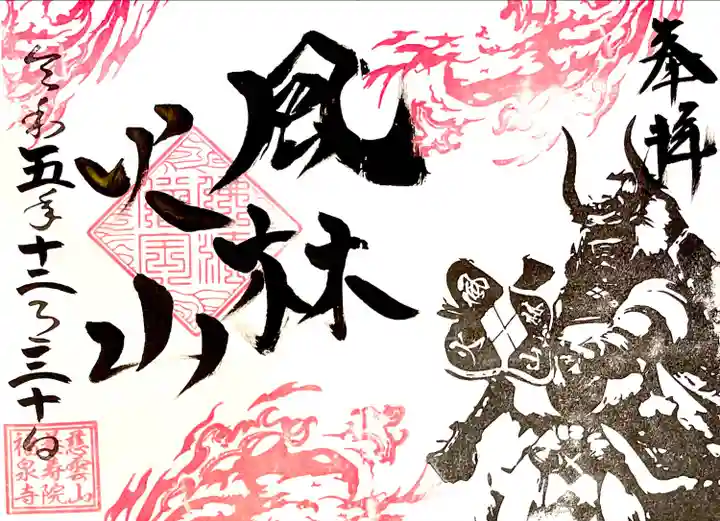 奉拝
風林
火山
令和五年十二月三十日
慈雲山
福寿院
神泉寺